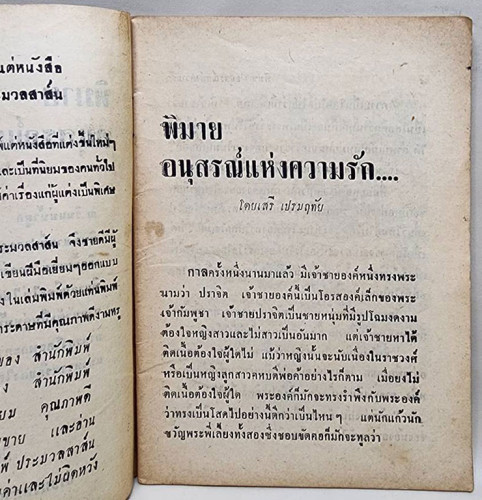 แต่หนังสือ
มวลสาส์น
พ์แต่หนังสือที่แต่งขึ้นใหม่ๆ
และเป็นที่นิยมของคนทั่วไป
ค่าเรื่องแก่ผู้แต่งเป็นพิเศษ
ระมวลสาส์น จึงขายดีมีผู้
เขียนฝีมือเยี่ยมๆออกแบบ
งในเล่มพิมพ์ด้วยแท่นพิมพ์
กระดาษที่มีคุณภาพดีงามหรู
ของ สำนักพิมพ์
ง สำนักพิมพ์
ยม คุณภาพดี
ขาย และอ่าน
พ์ ประมวลสาส์น
ค่าและไม่ผิดหวัง
พิมาย
อนุสรณ์แห่งความรัก....
โดยเสรี เปรมฤทัย
กาลครั้งหนึ่งนานมาแล้ว มีเจ้าชายองค์หนึ่งทรงพระ
นามว่า ปราจิต เจ้าชายองค์นี้เป็นโอรสองค์เล็กของพระ
เจ้ากัมพูชา เจ้าชายปราจิตเป็นชายหนุ่มที่มีรูปโฉมงดงาม
ต้องใจหญิงสาวและไม่สาวเป็นอันมาก แต่เจ้าชายหาได้
ติดเนื้อต้องใจผู้ใดไม่ แม้ว่าหญิงนั้นจะนับเนื่องในราชวงศ์
หรือเป็นหญิงลูกสาวคหบดีพ่อค้าอย่างไรก็ตาม เมื่อยังไม่
ติดเนื้อต้องใจผู้ใด พระองค์ก็มักจะทรงรำพึงกับพระองค์
ว่าทรงเป็นโสดไปอย่างนี้ดีกว่าเป็นไหนๆ แต่นักแก้วนัก
ขวัญพระพี่เลี้ยงทั้งสองซึ่งชอบขัดคอก็มักจะทูลว่า